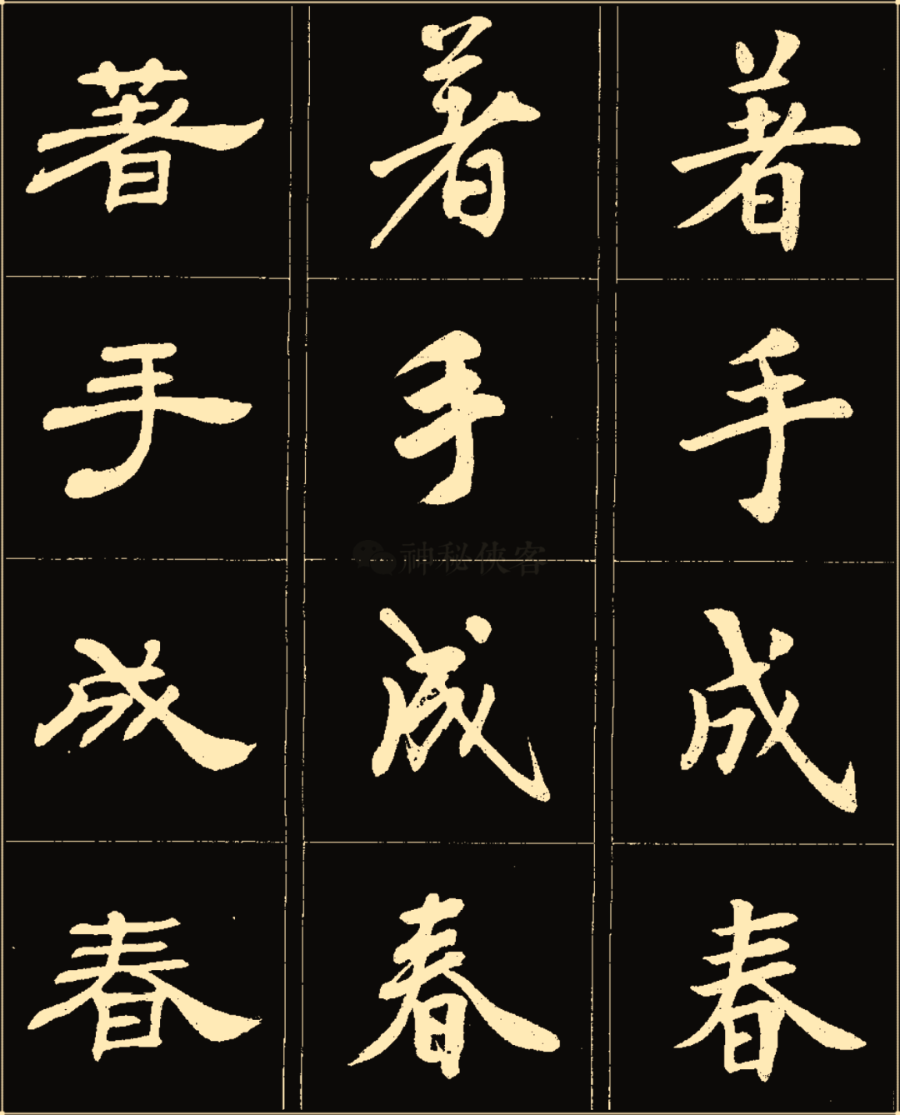 著 着 著
手 手 手
成 成 成
春 春 春
神秘侠客